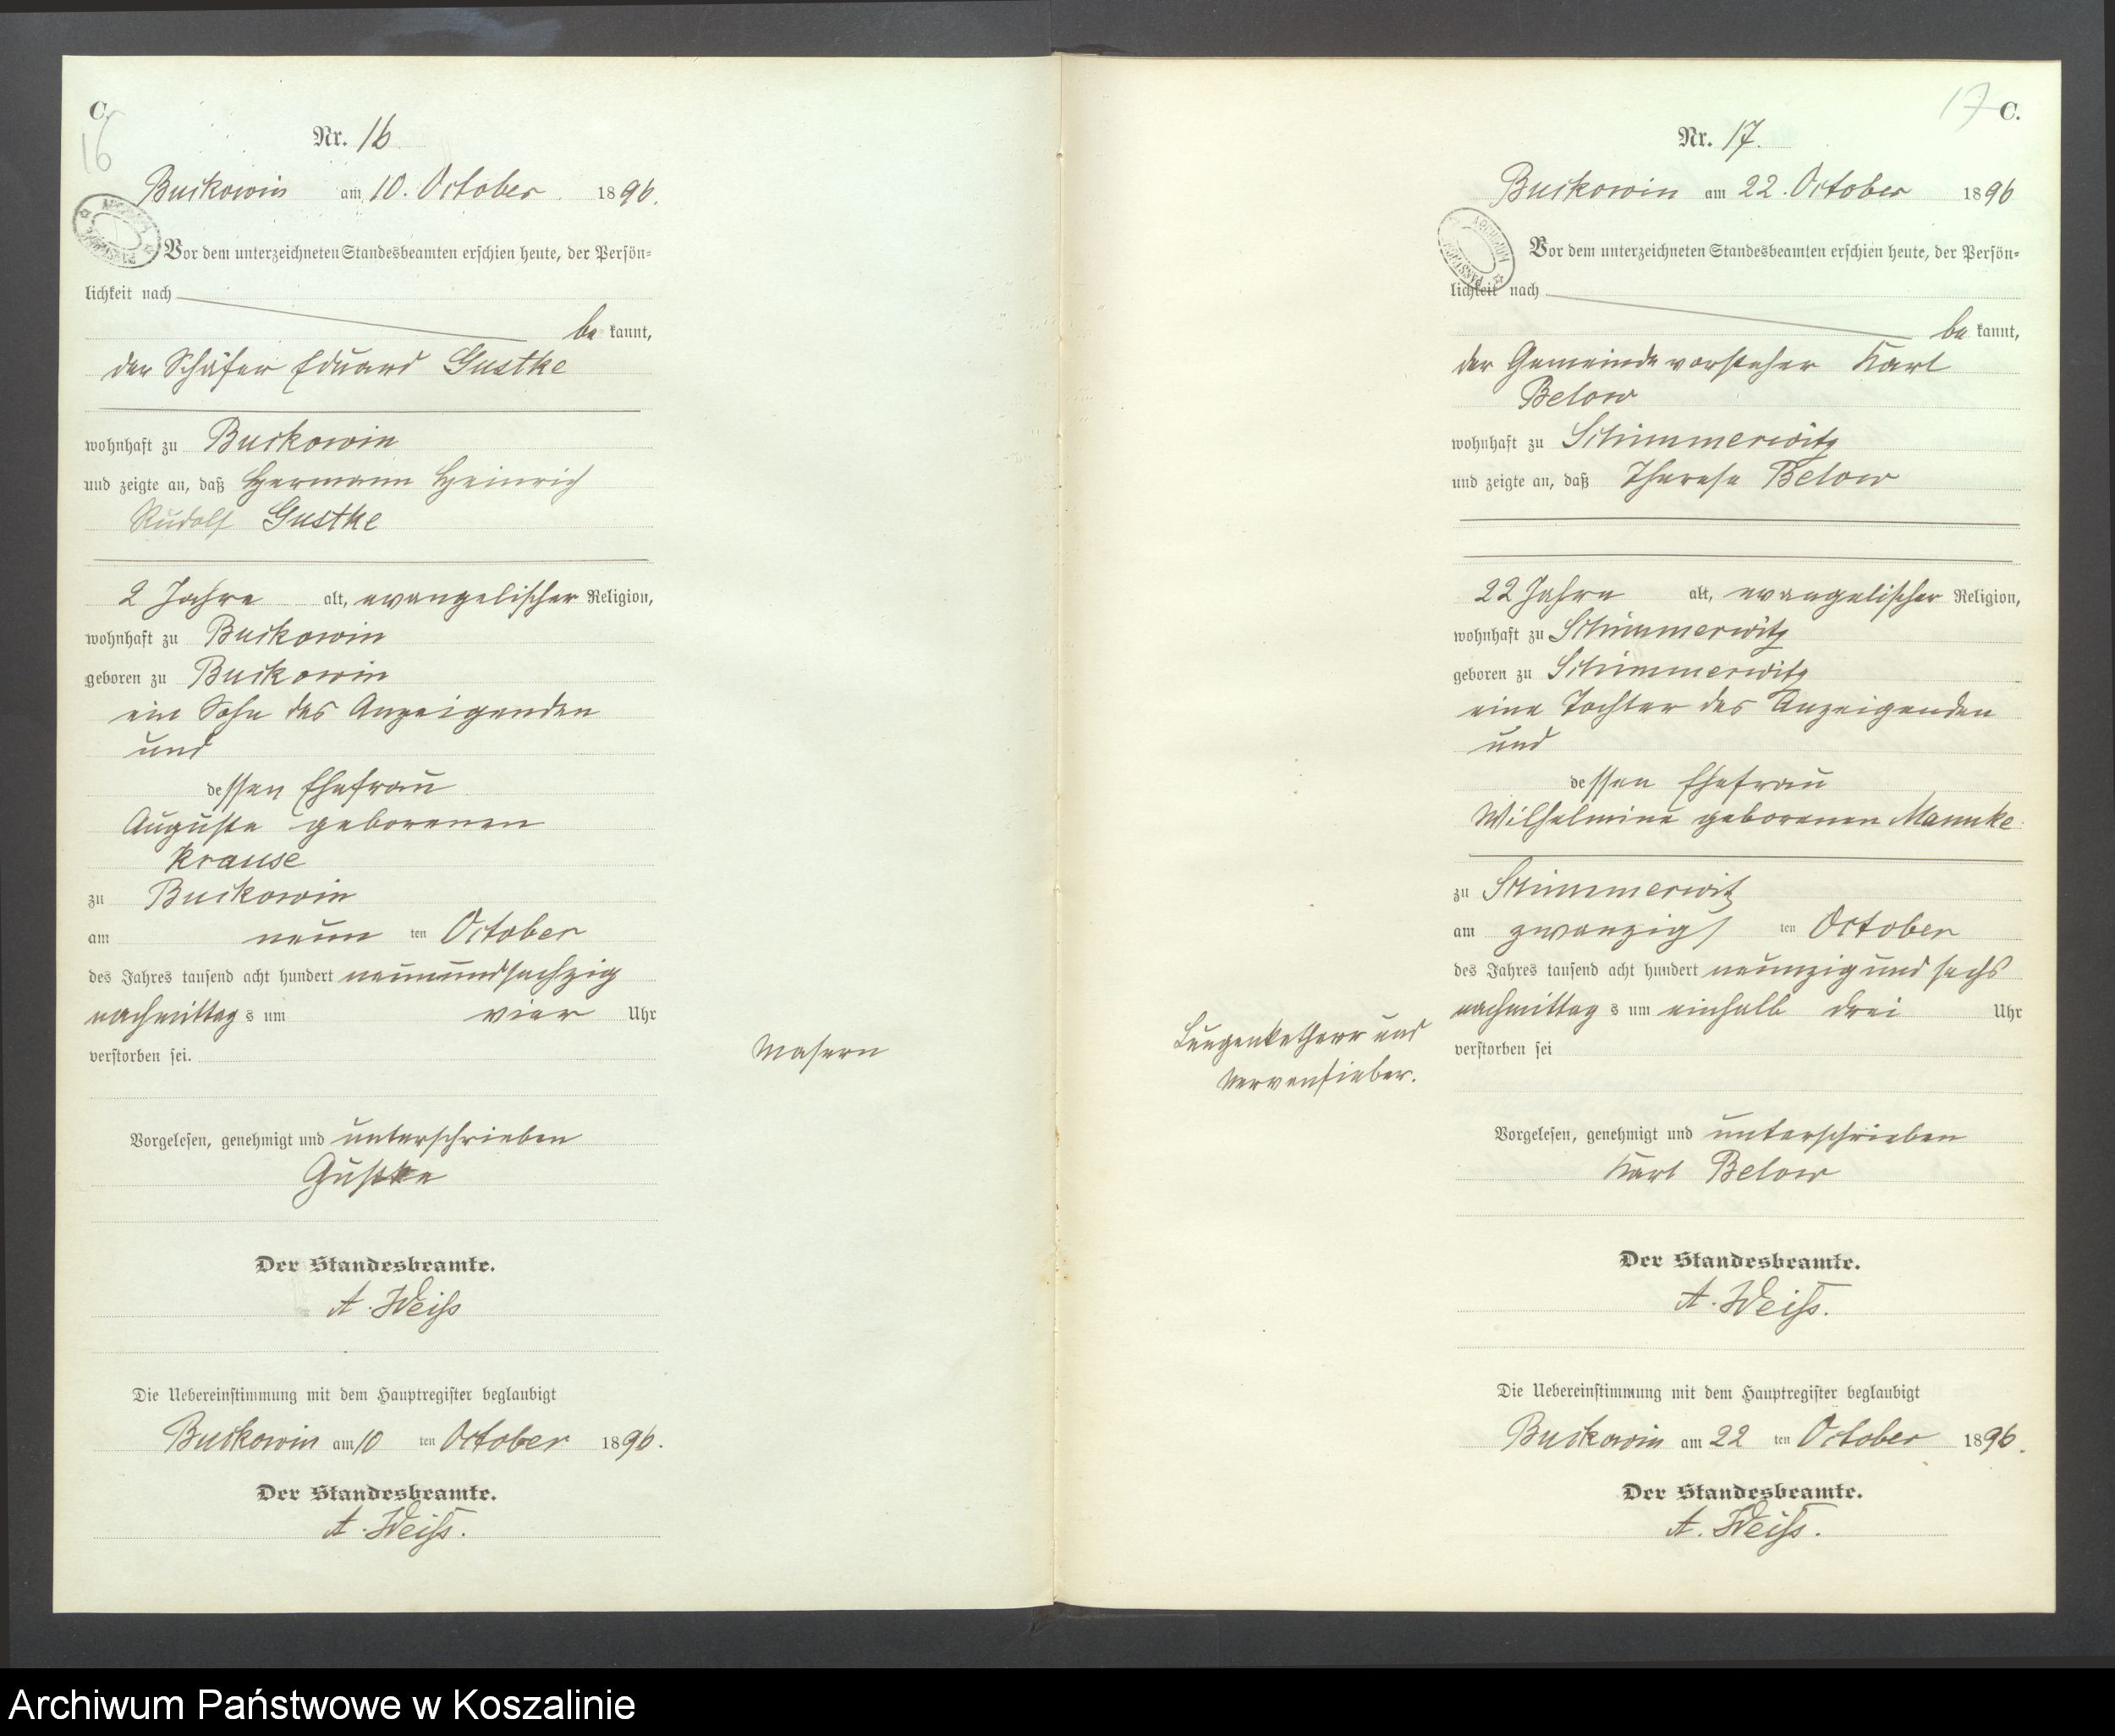 C.
16
Nr. 16
Buckowin am 10. October 1896.
Vor dem unterzeichneten Standesbeamten erschien heute, der Persön-
lichkeit nach
be kannt,
der Schäfer Eduard Gustke
wohnhaft zu Buckowin
und zeigte an, daß Hermann Heinrich
Rudolf Gustke
2 Jahre alt, evangelischer Religion,
wohnhaft zu Buckowin
geboren zu Buckowin
ein Sohn des Anzeigenden
und
dessen Ehefrau
Auguste geborenen
Krause
zu Buckowin
am neun ten October
des Jahres tausend acht hundert neunundsechzig
nachmittags um vier Uhr
verstorben sei.
Masern
Vorgelesen, genehmigt und unterschrieben
Gustke
Der Standesbeamte.
A. Weiss
Die Uebereinstimmung mit dem Hauptregister beglaubigt
Buckowin am 10 ten October 1896.
Der Standesbeamte.
A. Weiss.
17 C.
Nr. 17.
Buckowin am 22. October 1896
Vor dem unterzeichneten Standesbeamten erschien heute, der Persön-
lichkeit nach
be kannt,
der Gemeindevorsteher Karl
Below
wohnhaft zu Schimmerwitz
und zeigte an, daß Therese Below
22 Jahre alt, evangelischer Religion,
wohnhaft zu Schimmerwitz
geboren zu Schimmerwitz
eine Tochter des Anzeigenden
und
dessen Ehefrau
Wilhelmine geborenen Mannke
zu Schimmerwitz
am zwanzigs ten October
des Jahres tausend acht hundert neunzig und sechs
nachmittags um einhalb drei Uhr
verstorben sei
Lungenkatharr und
Nervenfieber.
Vorgelesen, genehmigt und unterschrieben
Karl Below
Der Standesbeamte.
A. Weiss.
Die Uebereinstimmung mit dem Hauptregister beglaubigt
Buckowin am 22 ten October 1896.
Der Standesbeamte.
A. Weiss.
Archiwum Państwowe w Koszalinie